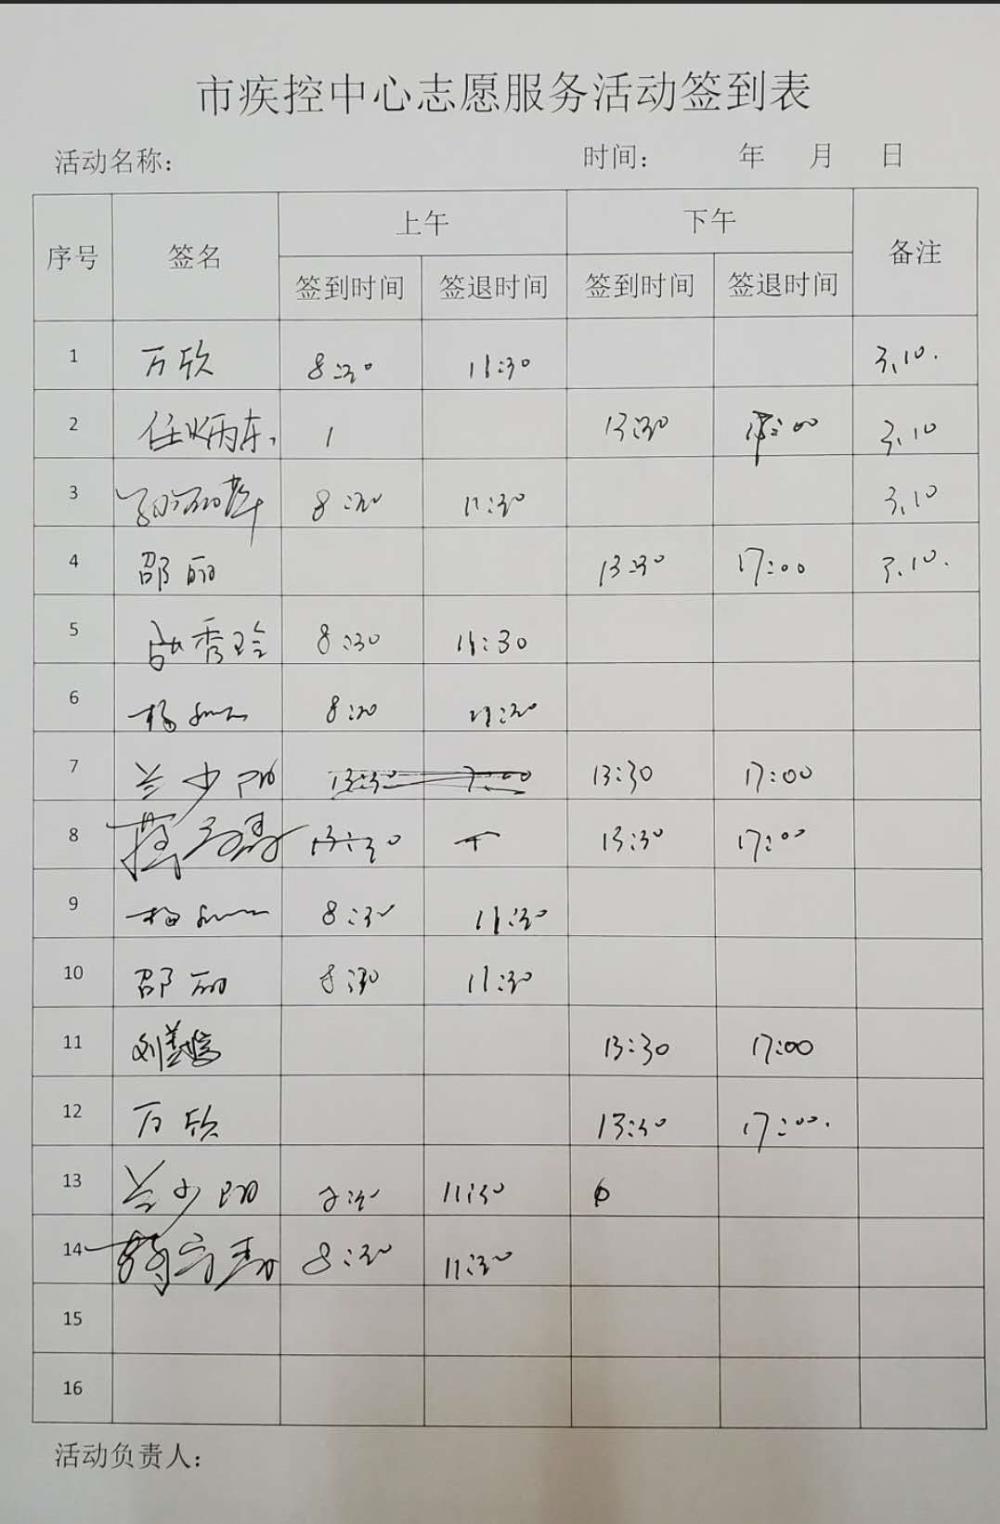 市疾控中心志愿服务活动签到表
活动名称: 时间: 年 月 日
序号 签名 上午 下午 备注
签到时间 签退时间 签到时间 签退时间
1 万欣 8:30 11:30 3.10.
2 任炳东 1 13:30 17:00 3.10
3 8:30 11:30 3.10
4 邵丽 13:30 17:00 3.10.
5 秀玲 8:30 11:30
6 杨 8:30 11:30
7 兰少阳 13:30 17:00 13:30 17:00
8 13:30 13:30 17:00
9 杨 8:30 11:30
10 邵丽 8:30 11:30
11 刘 13:30 17:00
12 万欣 13:30 17:00.
13 兰少阳 8:30 11:30
14 8:30 11:30
15
16
活动负责人: